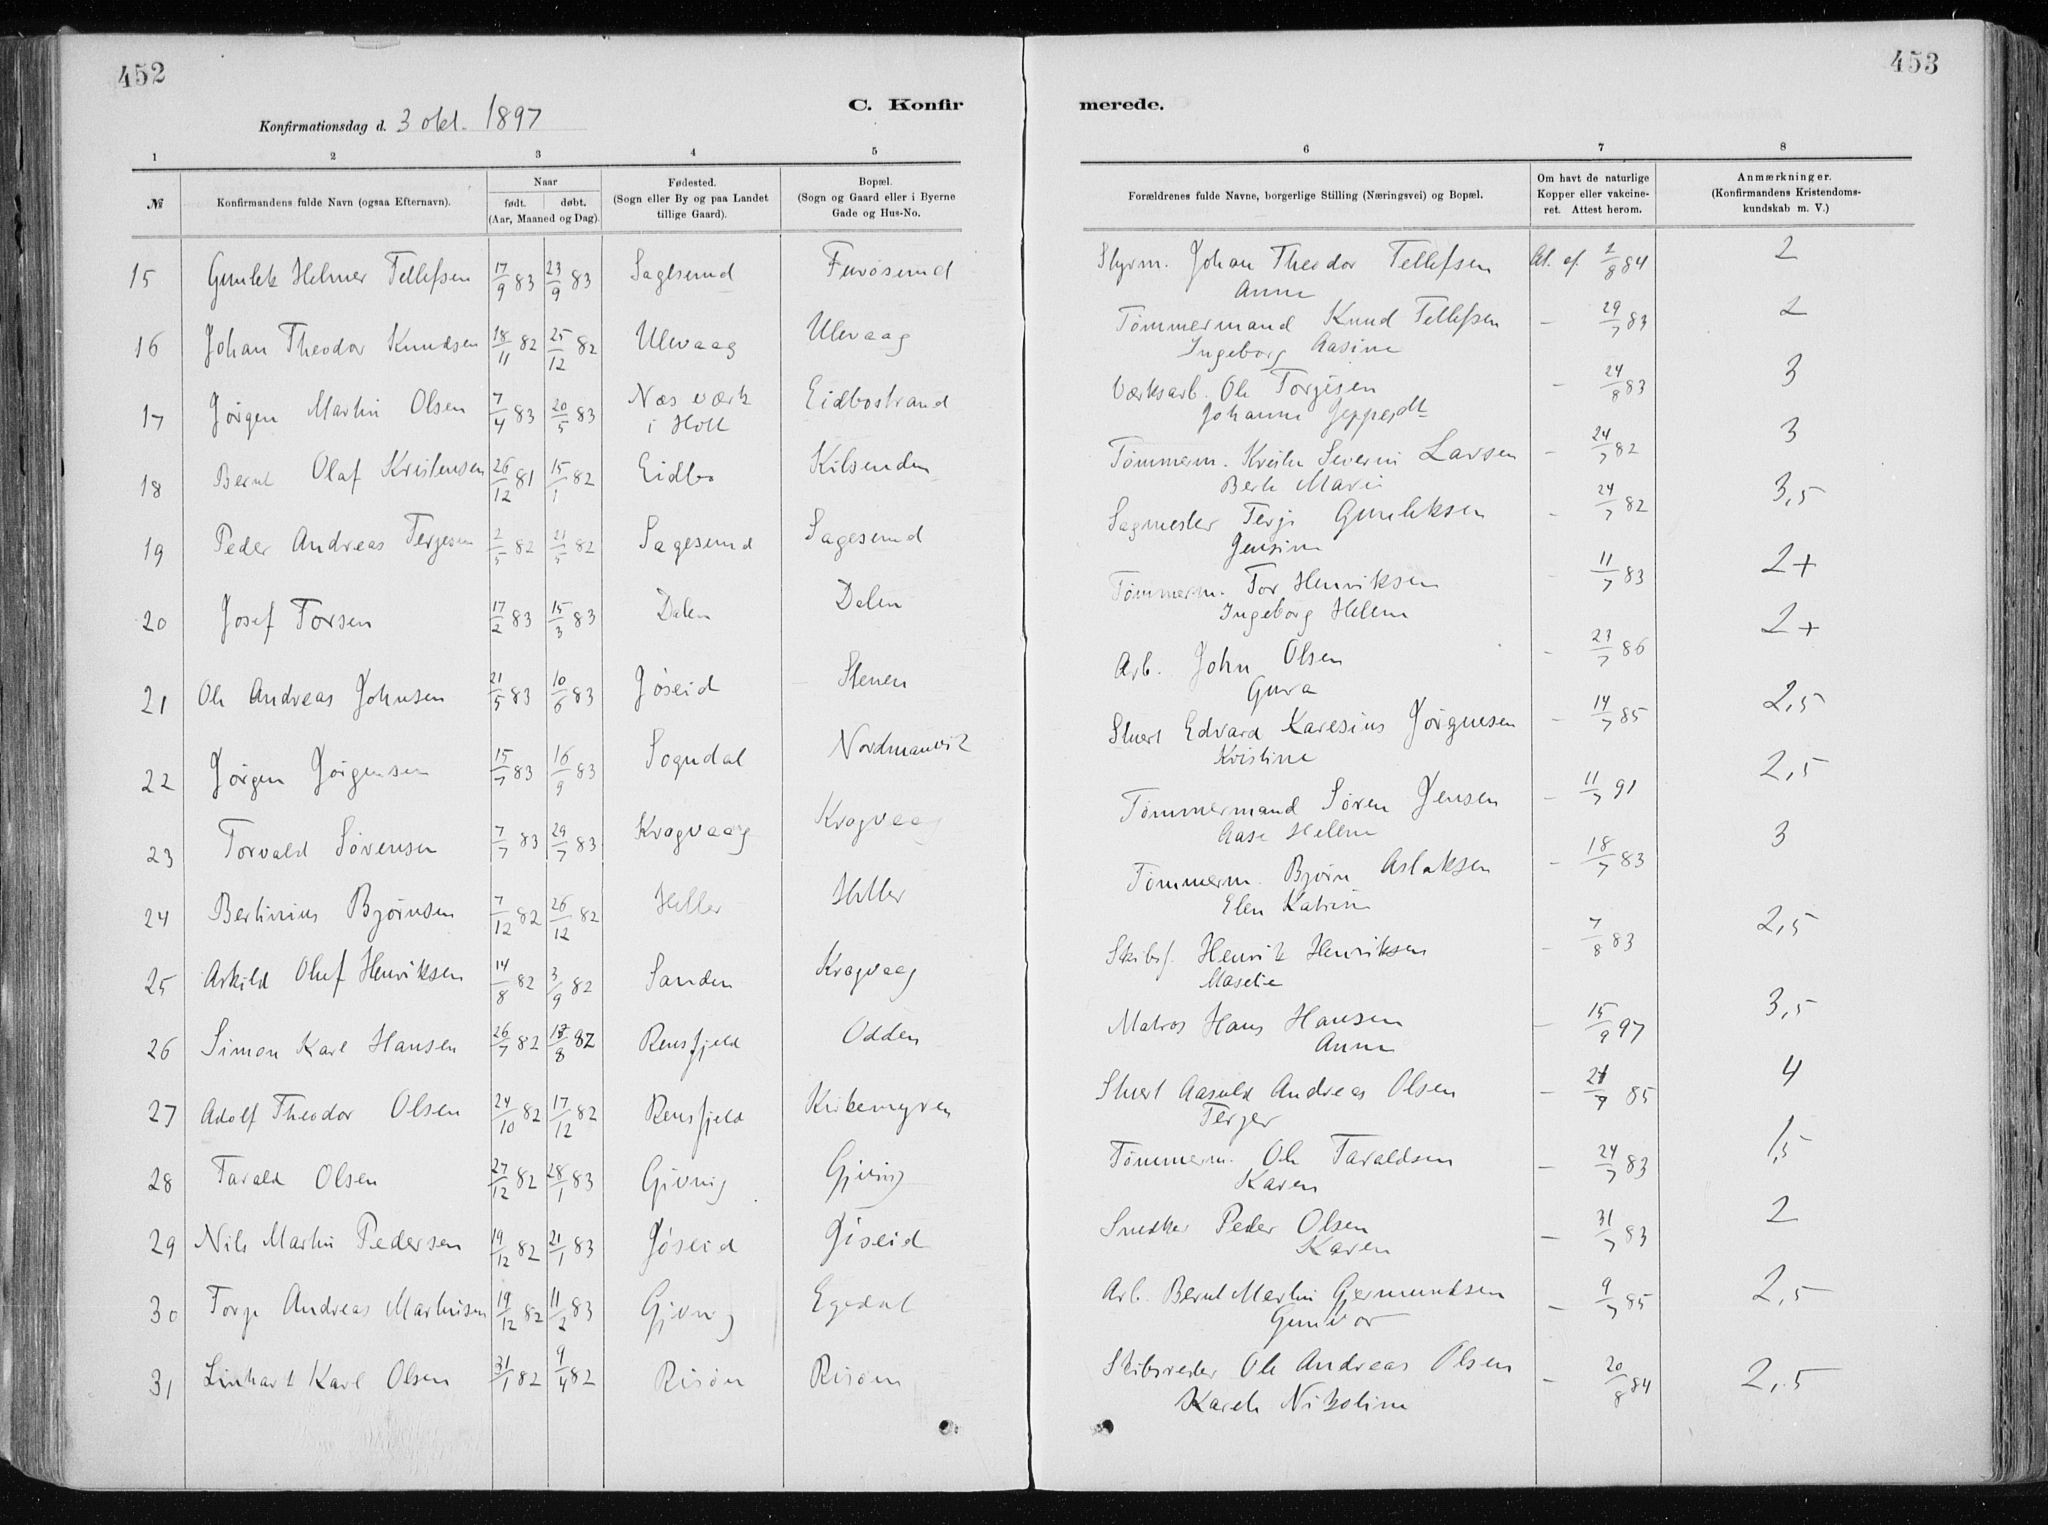 452
453
C. Konfirmerede.
Konfirmationsdag d. 3 okt. 1897
1 2 3 4 5 6 7 8
№ Konfirmandens fulde Navn (ogsaa Efternavn). Naar født. døbt. (Aar, Maaned og Dag). Fødested. (Sogn eller By og paa Landet tillige Gaard). Bopæl. (Sogn og Gaard eller i Byerne Gade og Hus-No. Forældrenes fulde Navne, borgerlige Stilling (Næringsvei) og Bopæl. Om havt de naturlige Kopper eller vakcineret. Attest herom. Anmærkninger. (Konfirmandens Kristendomskundskab m. V.)
15 Gunlek Helmer Tellefsen 17/9 83 23/9 83 Sagesund Furøsund Styrm. Johan Theodor Tellefsen At. af 2/8 84 2
Anne
16 Johan Theodor Knudsen 18/11 82 25/12 82 Ulevaag Ulevaag Tømmermand Knud Tellefsen – 29/7 83 2
Ingeborg Aasine
17 Jørgen Martin Olsen 7/4 83 20/5 83 Næs værk i Holt Eidbostrand Værksarb. Ole Torjesen – 24/8 83 3
Johanne Jeppesdt
18 Bernt Olaf Kristensen 26/12 81 15/1 82 Eidbo Kilsenden Tømmerm. Kristen Severin Larsen – 24/7 82 3
Berte Marie
19 Peder Andreas Terjesen 2/5 82 21/5 82 Sagesund Sagesund Sagmester Terje Gunleksen – 24/7 82 3,5
Jensine
20 Josef Torsen 17/2 83 15/3 83 Dalen Dalen Tømmerm. Tor Henriksen – 11/7 83 2+
Ingeborg Helene
21 Ole Andreas Johnsen 21/5 83 10/6 83 Jøseid Stenen Arb. John Olsen – 23/7 86 2+
Gura
22 Jørgen Jørgensen 15/7 83 16/9 83 Sogndal Nordmanvik Stuert Edvard Karesius Jørgensen – 14/7 85 2,5
Kristine
23 Torvald Sørensen 7/7 83 29/7 83 Kragvaag Kragvaag Tømmermand Søren Jensen – 11/7 91 2,5
Aase Helene
24 Bertinius Bjørnsen 7/12 82 26/12 82 Heller Heller Tømmerm. Bjørn Aslaksen – 18/7 83 3
Elen Katrine
25 Askild Oluf Henriksen 14/8 82 3/9 82 Sanden Kragvaag Skibsf. Henrik Henriksen – 7/8 83 2,5
Maselie
26 Simon Karl Hansen 26/7 82 18/8 82 Rensfjeld Odden Matros Hans Hansen – 15/9 97 3,5
Anne
27 Adolf Theodor Olsen 24/10 82 17/12 82 Rensfjeld Kirkemyren Stuert Aasuld Andreas Olsen – 21/7 85 4
Terjer
28 Tarald Olsen 27/12 82 28/1 83 Gjvnig Gjving Tømmerm. Ole Taraldsen – 24/7 83 1,5
Karen
29 Nils Martin Pedersen 19/12 82 21/1 83 Jøseid Jøseid Snedker Peder Olsen – 31/7 83 2
Karen
30 Torje Andreas Martinsen 19/12 82 11/2 83 Gjvnig Egedal Arb. Bernt Martin Gjermundsen – 9/7 85 2,5
Gunvor
31 Linhart Karl Olsen 31/1 82 9/4 82 Risøen Risøen Skibsreder Ole Andreas Olsen – 20/8 84 2,5
Karen Nikoline